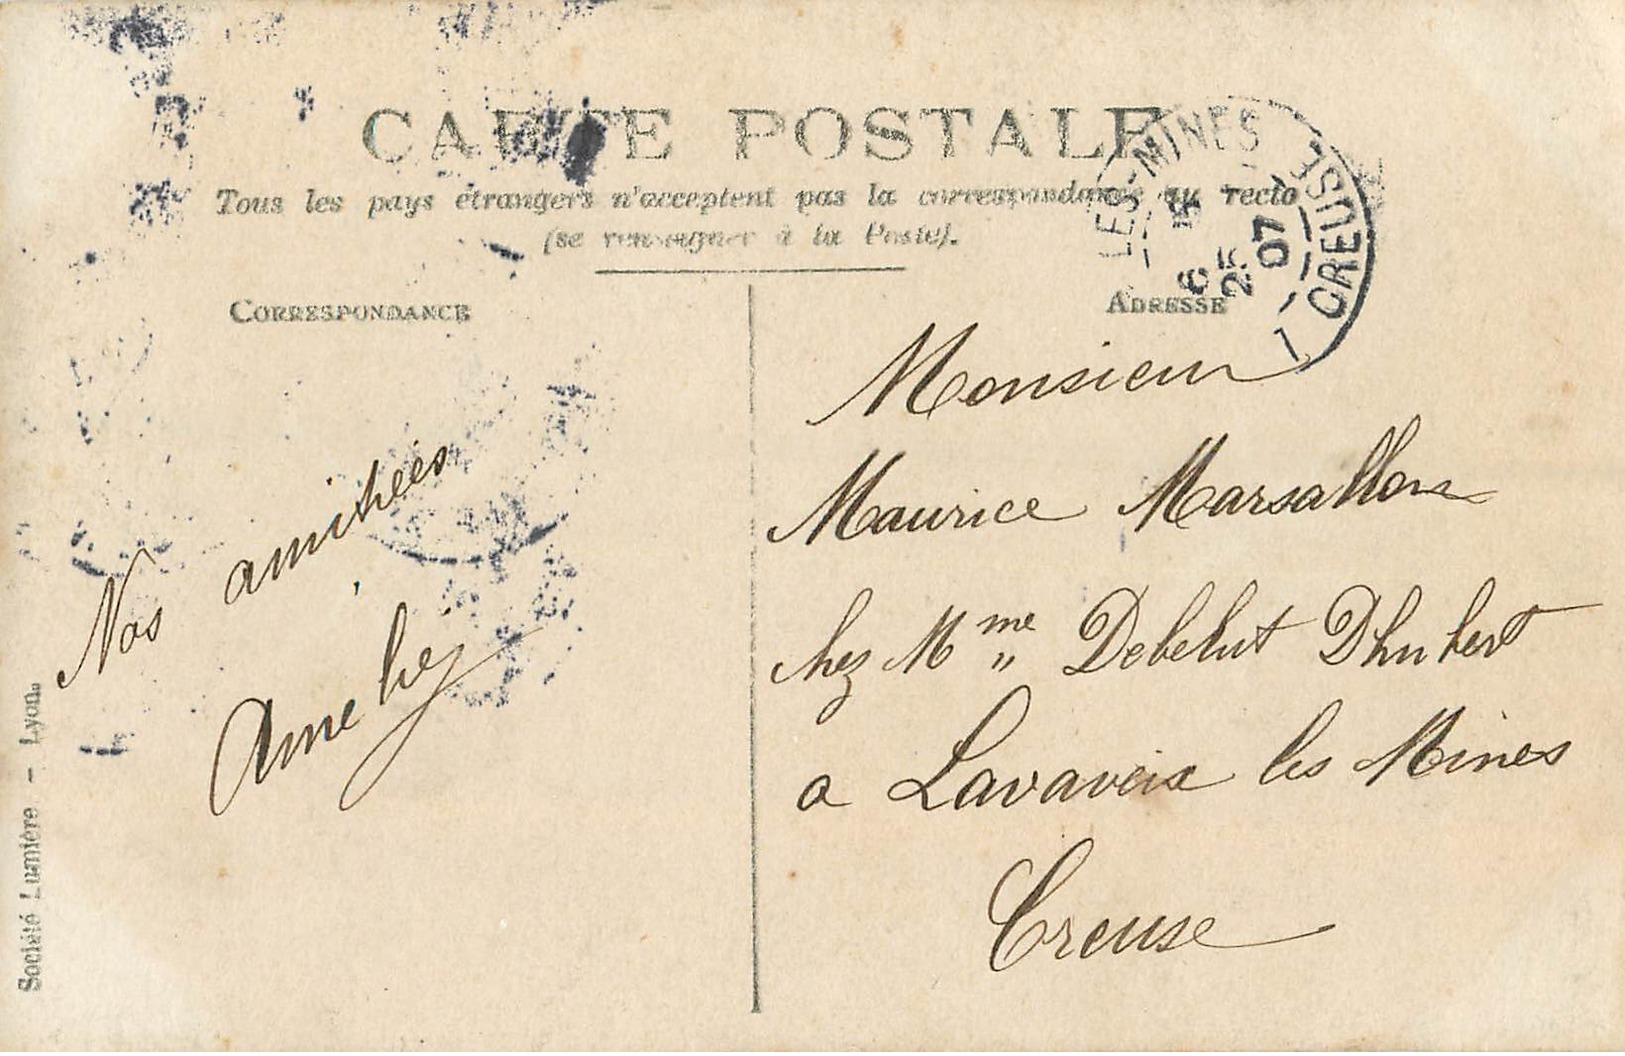 CARTE POSTALE
Tous les pays étrangers n'acceptent pas la correspondance au recto
(se renseigner à la Poste).
CORRESPONDANCE
ADRESSE
LES-MINES
CREUSE
6
25
07
Nos amitiées
Monsieur
Maurice Marsallon
chez Mme Debelut Dhubert
a Lavaveix les Mines
Creuse
Société Lumière - Lyon.